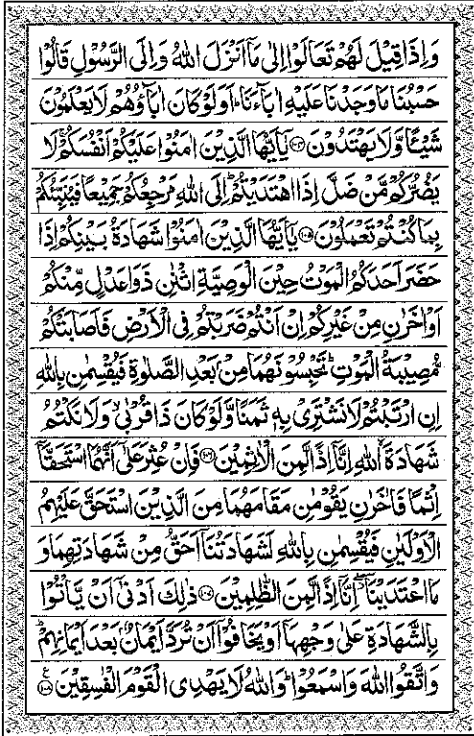 وَاِذَا قِيْلَ لَهُمْ تَعَالَوْا اِلٰى مَاۤ اَنْزَلَ اللهُ وَاِلَى الرَّسُوْلِ قَالُوْا
حَسْبُنَا مَا وَجَدْنَا عَلَيْهِ اٰبَآءَنَا ؕ اَوَلَوْ كَانَ اٰبَآؤُهُمْ لَا يَعْلَمُوْنَ
شَيْـًٔا وَّلَا يَهْتَدُوْنَ ﴿۱۰۴﴾ يٰۤاَيُّهَا الَّذِيْنَ اٰمَنُوْا عَلَيْكُمْ اَنْفُسَكُمْ ۚ لَا
يَضُرُّكُمْ مَّنْ ضَلَّ اِذَا اهْتَدَيْتُمْ ؕ اِلَى اللهِ مَرْجِعُكُمْ جَمِيْعًا فَيُنَبِّئُكُمْ
بِمَا كُنْتُمْ تَعْمَلُوْنَ ﴿۱۰۵﴾ يٰۤاَيُّهَا الَّذِيْنَ اٰمَنُوْا شَهَادَةُ بَيْنِكُمْ اِذَا
حَضَرَ اَحَدَكُمُ الْمَوْتُ حِيْنَ الْوَصِيَّةِ اثْنٰنِ ذَوَا عَدْلٍ مِّنْكُمْ
اَوْ اٰخَرٰنِ مِنْ غَيْرِكُمْ اِنْ اَنْتُمْ ضَرَبْتُمْ فِى الْاَرْضِ فَاَصَابَتْكُمْ
مُّصِيْبَةُ الْمَوْتِ ؕ تَحْبِسُوْنَهُمَا مِنْۢ بَعْدِ الصَّلٰوةِ فَيُقْسِمٰنِ بِاللهِ
اِنِ ارْتَبْتُمْ لَا نَشْتَرِىْ بِهٖ ثَمَنًا وَّلَوْ كَانَ ذَا قُرْبٰى ۙ وَلَا نَكْتُمُ
شَهَادَةَ اللهِ اِنَّاۤ اِذًا لَّمِنَ الْاٰثِمِيْنَ ﴿۱۰۶﴾ فَاِنْ عُثِرَ عَلٰۤى اَنَّهُمَا اسْتَحَقَّاۤ
اِثْمًا فَاٰخَرٰنِ يَقُوْمٰنِ مَقَامَهُمَا مِنَ الَّذِيْنَ اسْتَحَقَّ عَلَيْهِمُ
الْاَوْلَيٰنِ فَيُقْسِمٰنِ بِاللهِ لَشَهَادَتُنَاۤ اَحَقُّ مِنْ شَهَادَتِهِمَا وَ
مَا اعْتَدَيْنَاۤ ۖ اِنَّاۤ اِذًا لَّمِنَ الظّٰلِمِيْنَ ﴿۱۰۷﴾ ذٰلِكَ اَدْنٰۤى اَنْ يَّاْتُوْا
بِالشَّهَادَةِ عَلٰى وَجْهِهَاۤ اَوْ يَخَافُوْۤا اَنْ تُرَدَّ اَيْمَانٌۢ بَعْدَ اَيْمَانِهِمْ ؕ
وَاتَّقُوا اللهَ وَاسْمَعُوْا ؕ وَاللهُ لَا يَهْدِى الْقَوْمَ الْفٰسِقِيْنَ ﴿۱۰۸﴾ ع